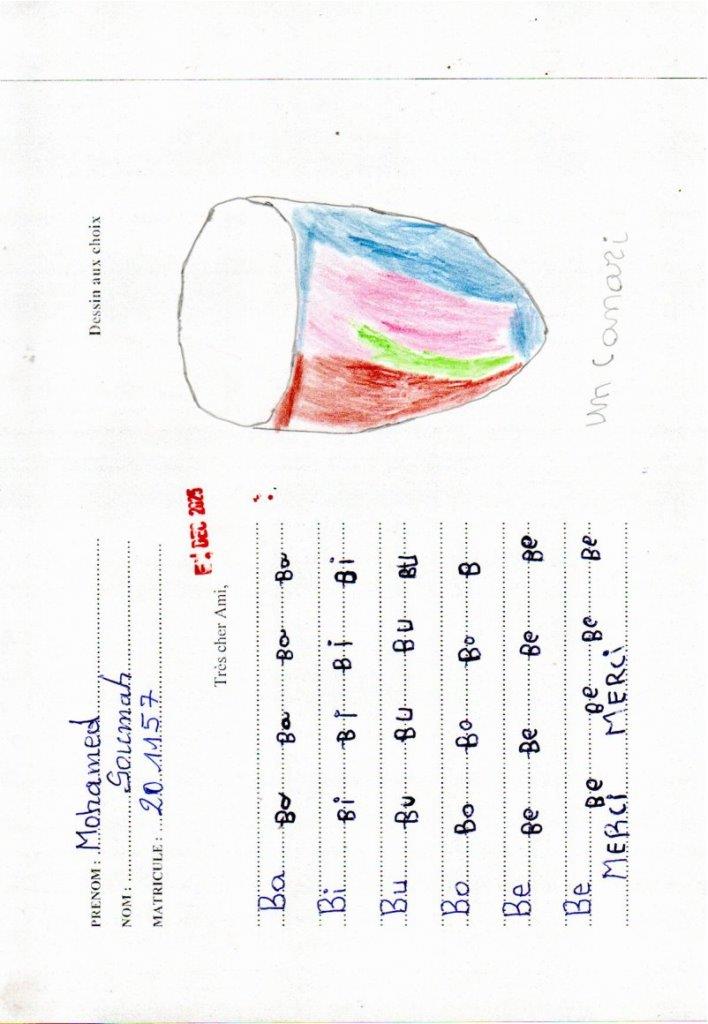 PRENOM : Mohamed
NOM : Soumah
MATRICULE : 20.1157
DEC 2025
Très cher Ami,
Ba Ba Ba Ba Ba
Bi Bi Bi Bi Bi
Bu Bu Bu Bu Bu
Bo Bo Bo Bo B
Be Be Be Be Be
Be Be Be Be Be
MERCi MERCi
Dessin aux choix
un canari